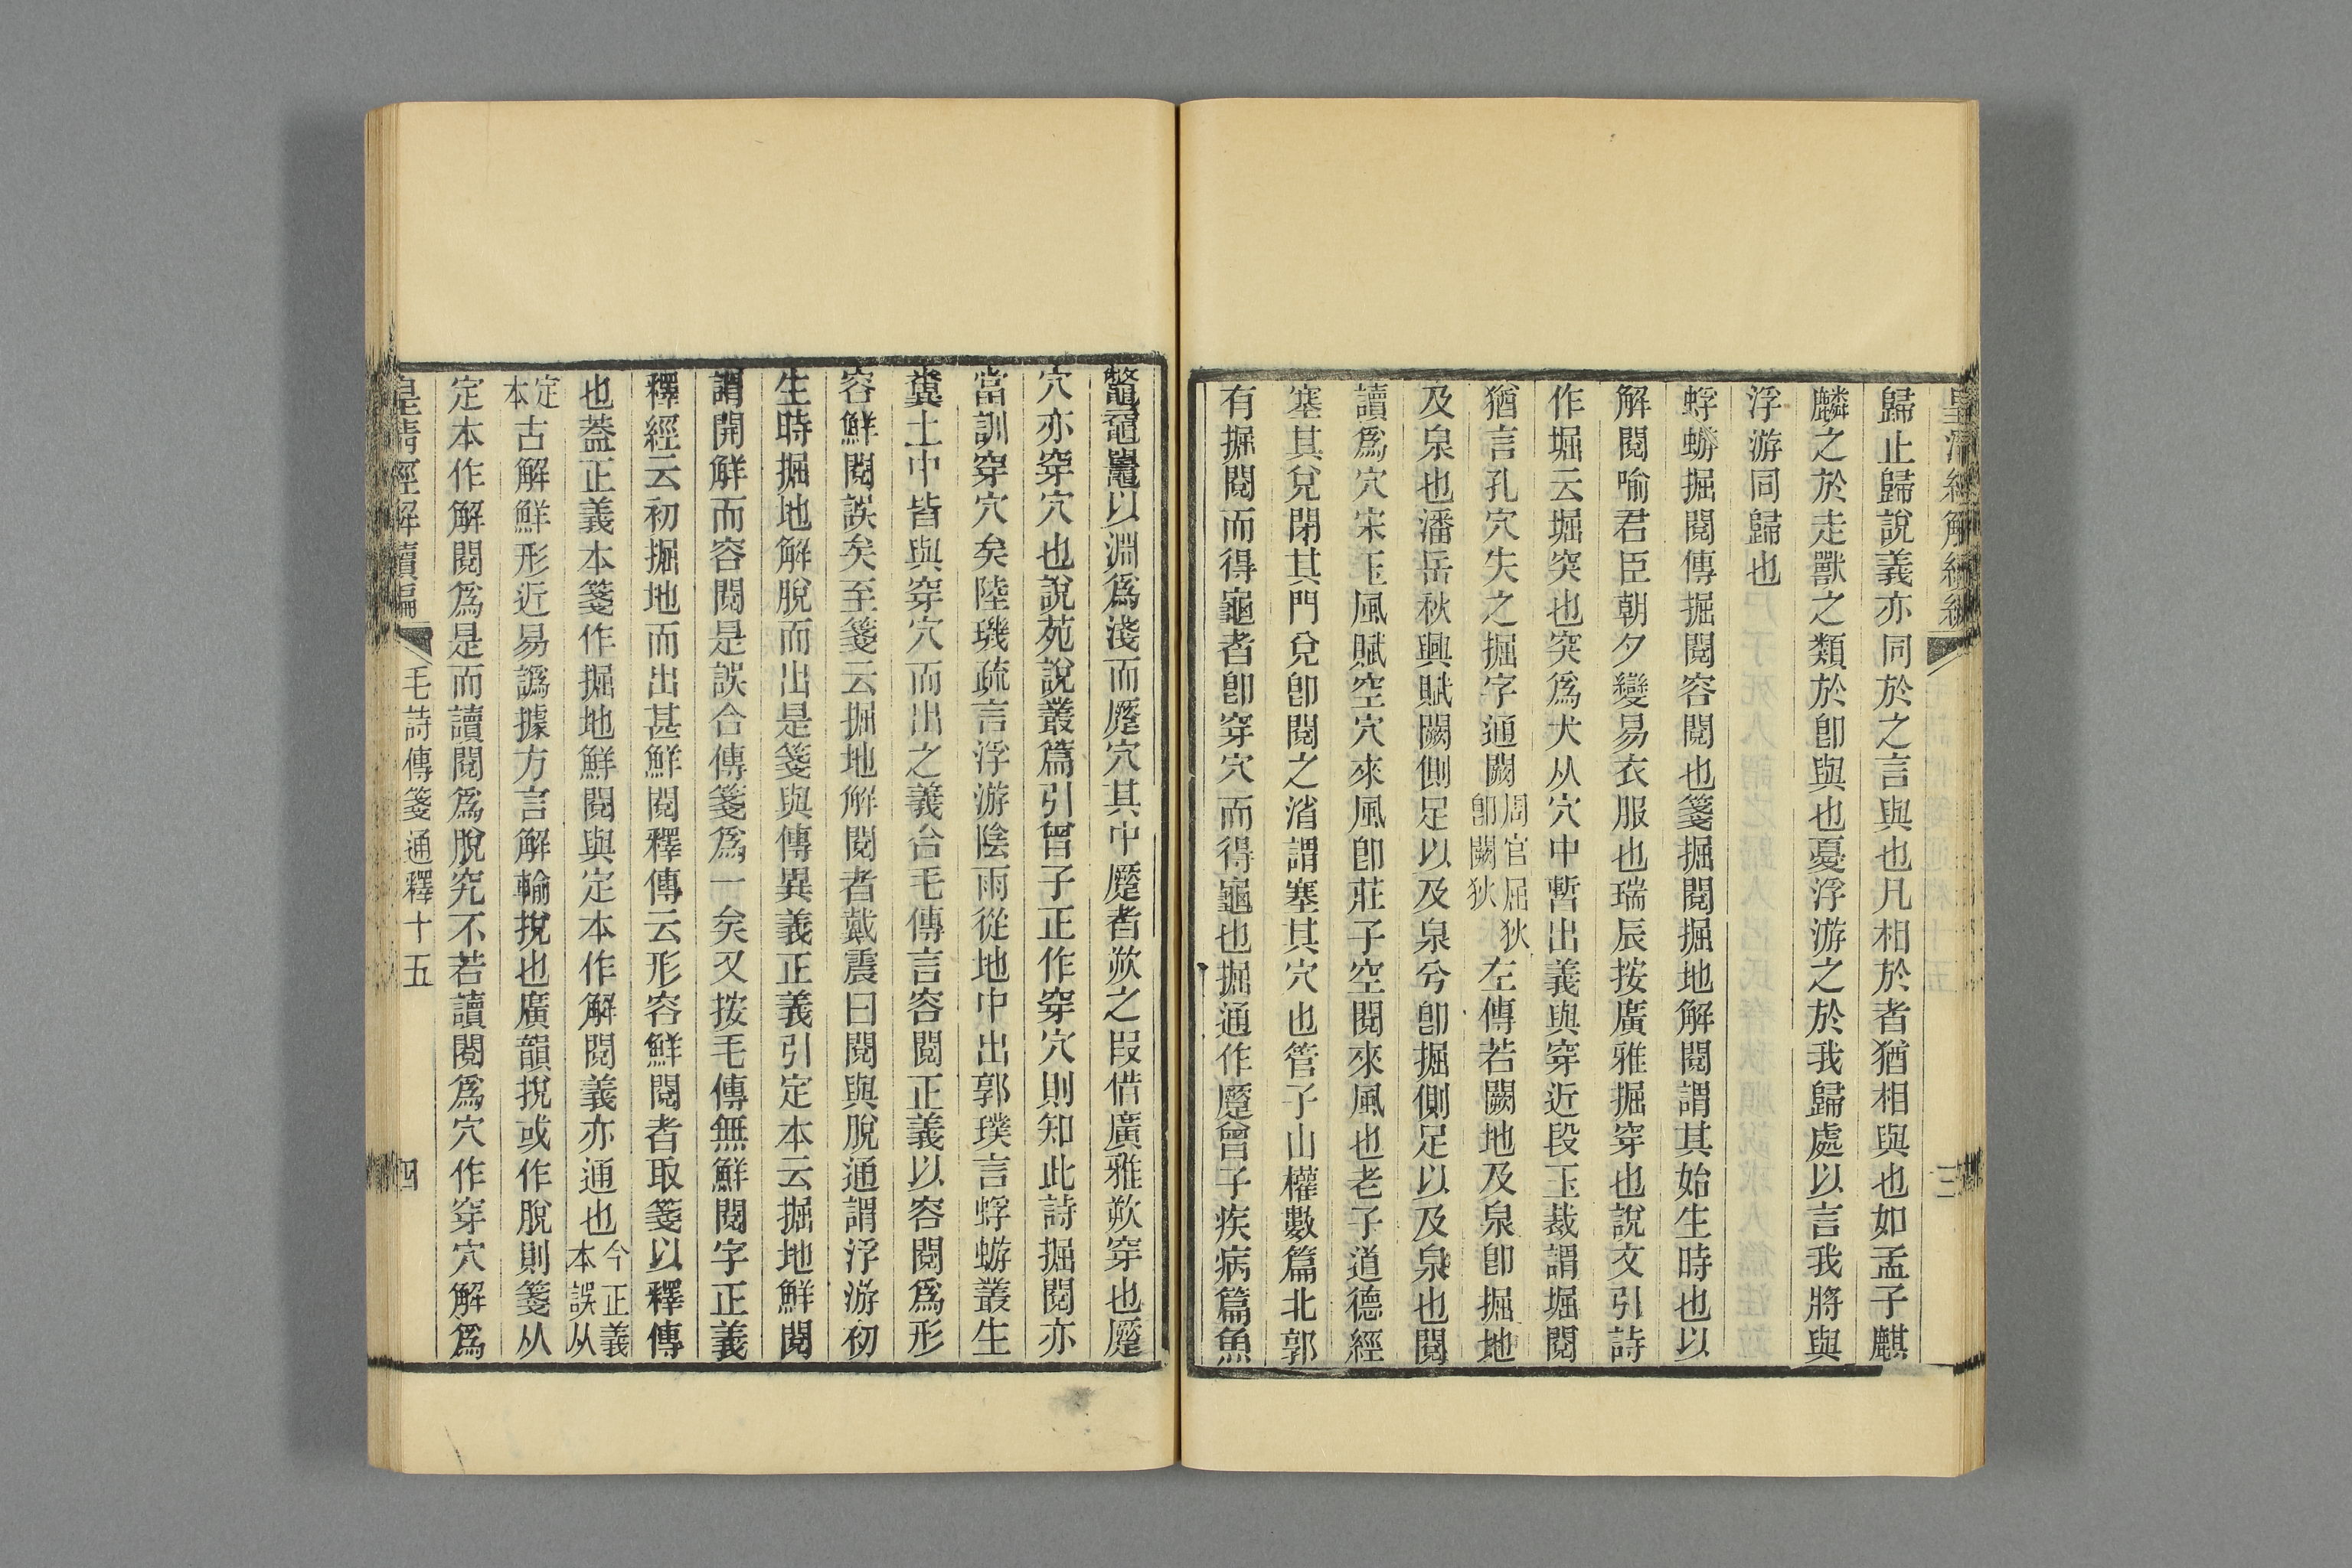 皇清經解續編
三
歸止歸說義亦同於之言與也凡相於者猶相與也如孟子麒
麟之於走獸之類於卽與也憂浮游之於我歸處以言我將與
浮游同歸也
蜉蝣掘閱傳掘閱容閱也箋掘閱掘地解閱謂其始生時也以
解閱喻君臣朝夕變易衣服也瑞辰按廣雅掘穿也說文引詩
作堀云堀突也突爲犬从穴中暫出義與穿近段玉裁謂堀閱
猶言孔穴失之掘字通闕周官屈狄卽闕狄左傳若闕地及泉卽掘地
及泉也潘岳秋興賦闕側足以及泉兮卽掘側足以及泉也閱
讀爲穴宋玉風賦空穴來風卽莊子空閱來風也老子道德經
塞其兌閉其門兌卽閱之消謂塞其穴也管子山權數篇北郭
有掘閱而得龜者卽穿穴而得龜也掘通作蹷曾子疾病篇魚
鼈黿鼉以淵爲淺而蹷穴其中蹷者欮之叚借廣雅欮穿也蹷
穴亦穿穴也說苑說叢篇引曾子正作穿穴則知此詩掘閱亦
當訓穿穴矣陸璣疏言浮游陰雨從地中出郭璞言蜉蝣叢生
糞土中皆與穿穴而出之義合毛傳言容閱正義以容閱爲形
容鮮閱誤矣至箋云掘地解閱者戴震曰閱與脫通謂浮游初
生時掘地解脫而出是箋與傳異義正義引定本云掘地鮮閱
謂開鮮而容閱是誤合傳箋爲一矣又按毛傳無鮮閱字正義
釋經云初掘地而出甚鮮閱釋傳云形容鮮閱者取箋以釋傳
也蓋正義本箋作掘地鮮閱與定本作解閱義亦通也今正義本誤从
定本古解鮮形近易譌據方言解輸挩也廣韻挩或作脫則箋从
定本作解閱爲是而讀閱爲脫究不若讀閱爲穴作穿穴解爲
皇清經解續編
毛詩傳箋通釋十五
四